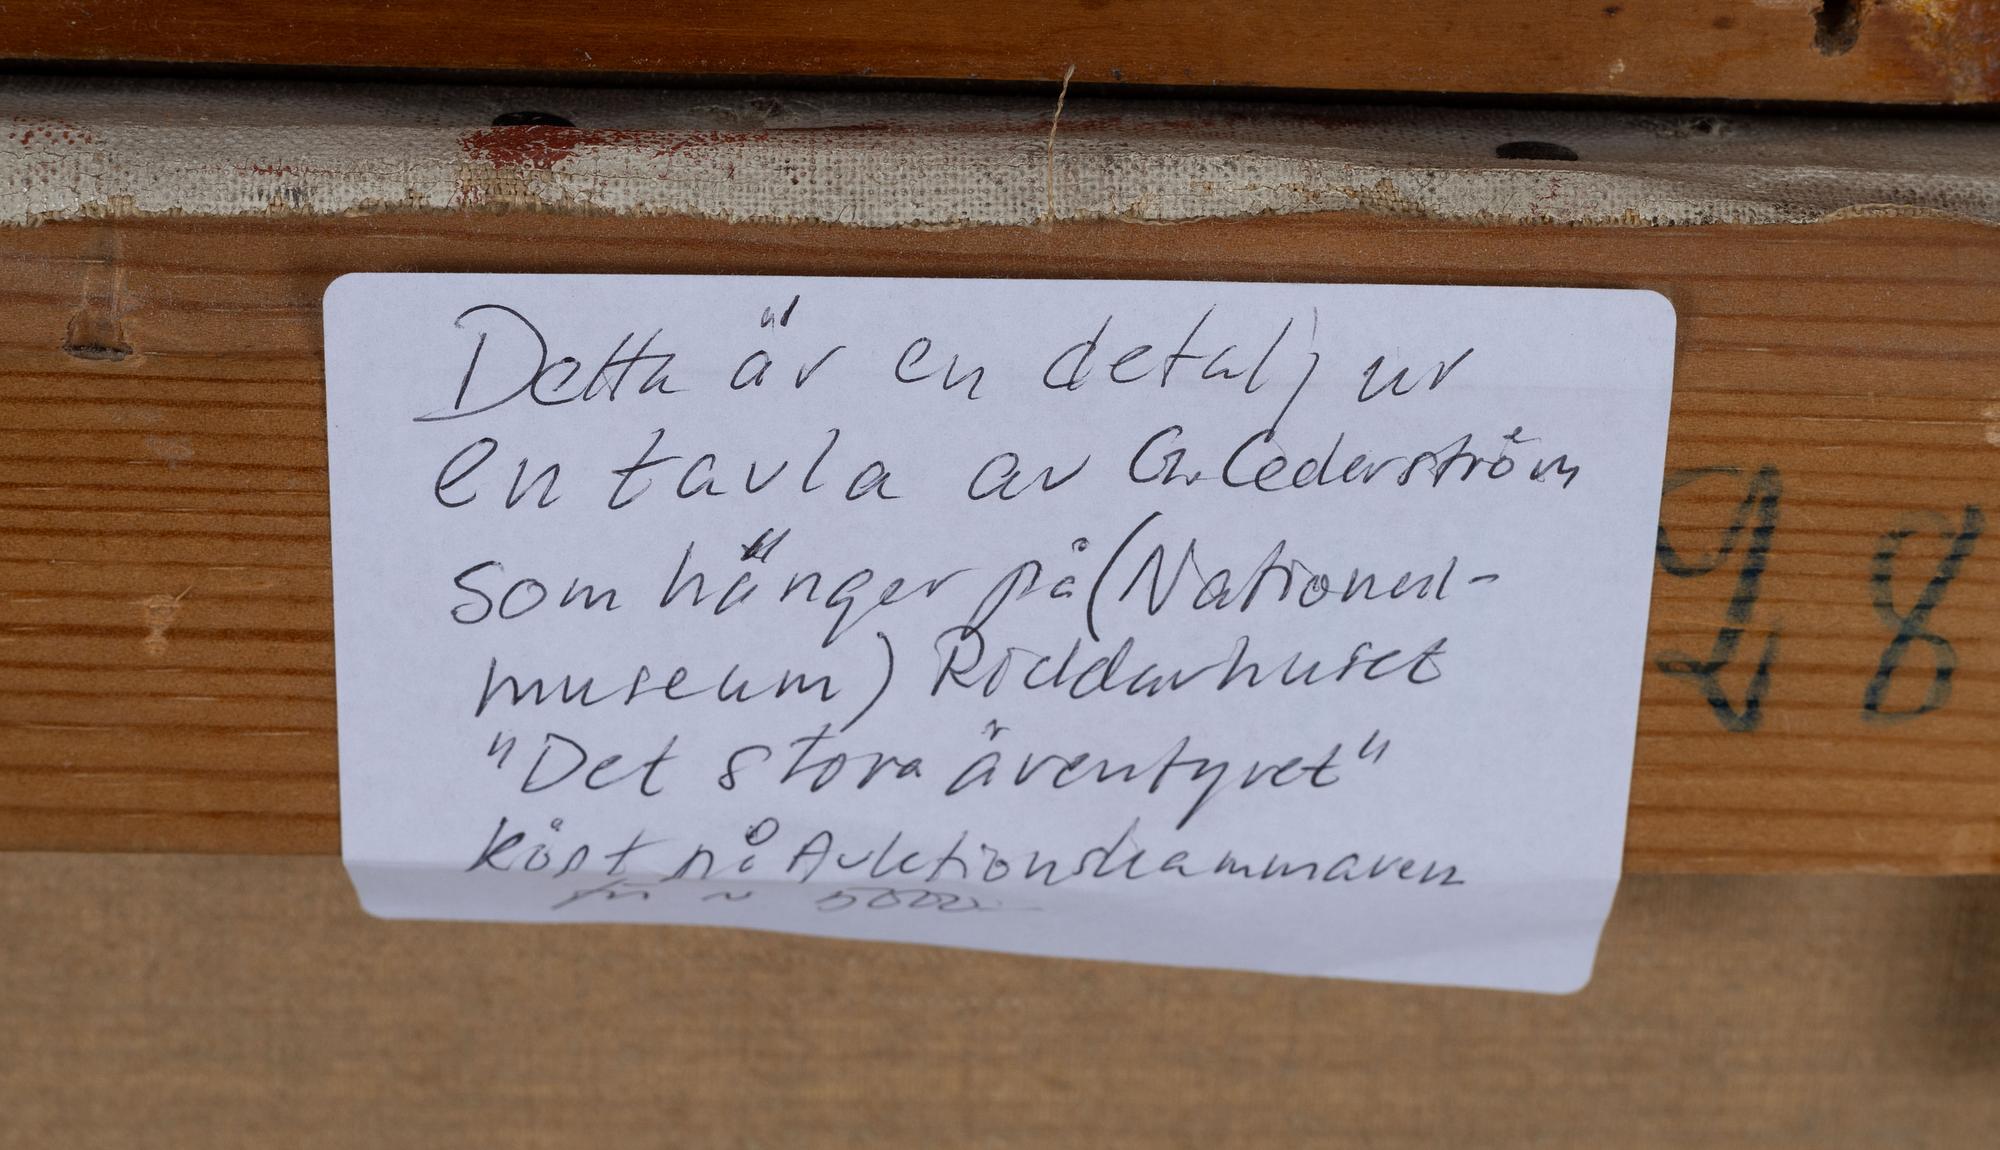 Detta är en detalj ur
en tavla av G. Cederström
som hänger på (National-
museum) Riddarhuset
"Det stora äventyret"
köpt på Auktionskammaren
för ~ 5000:-
28